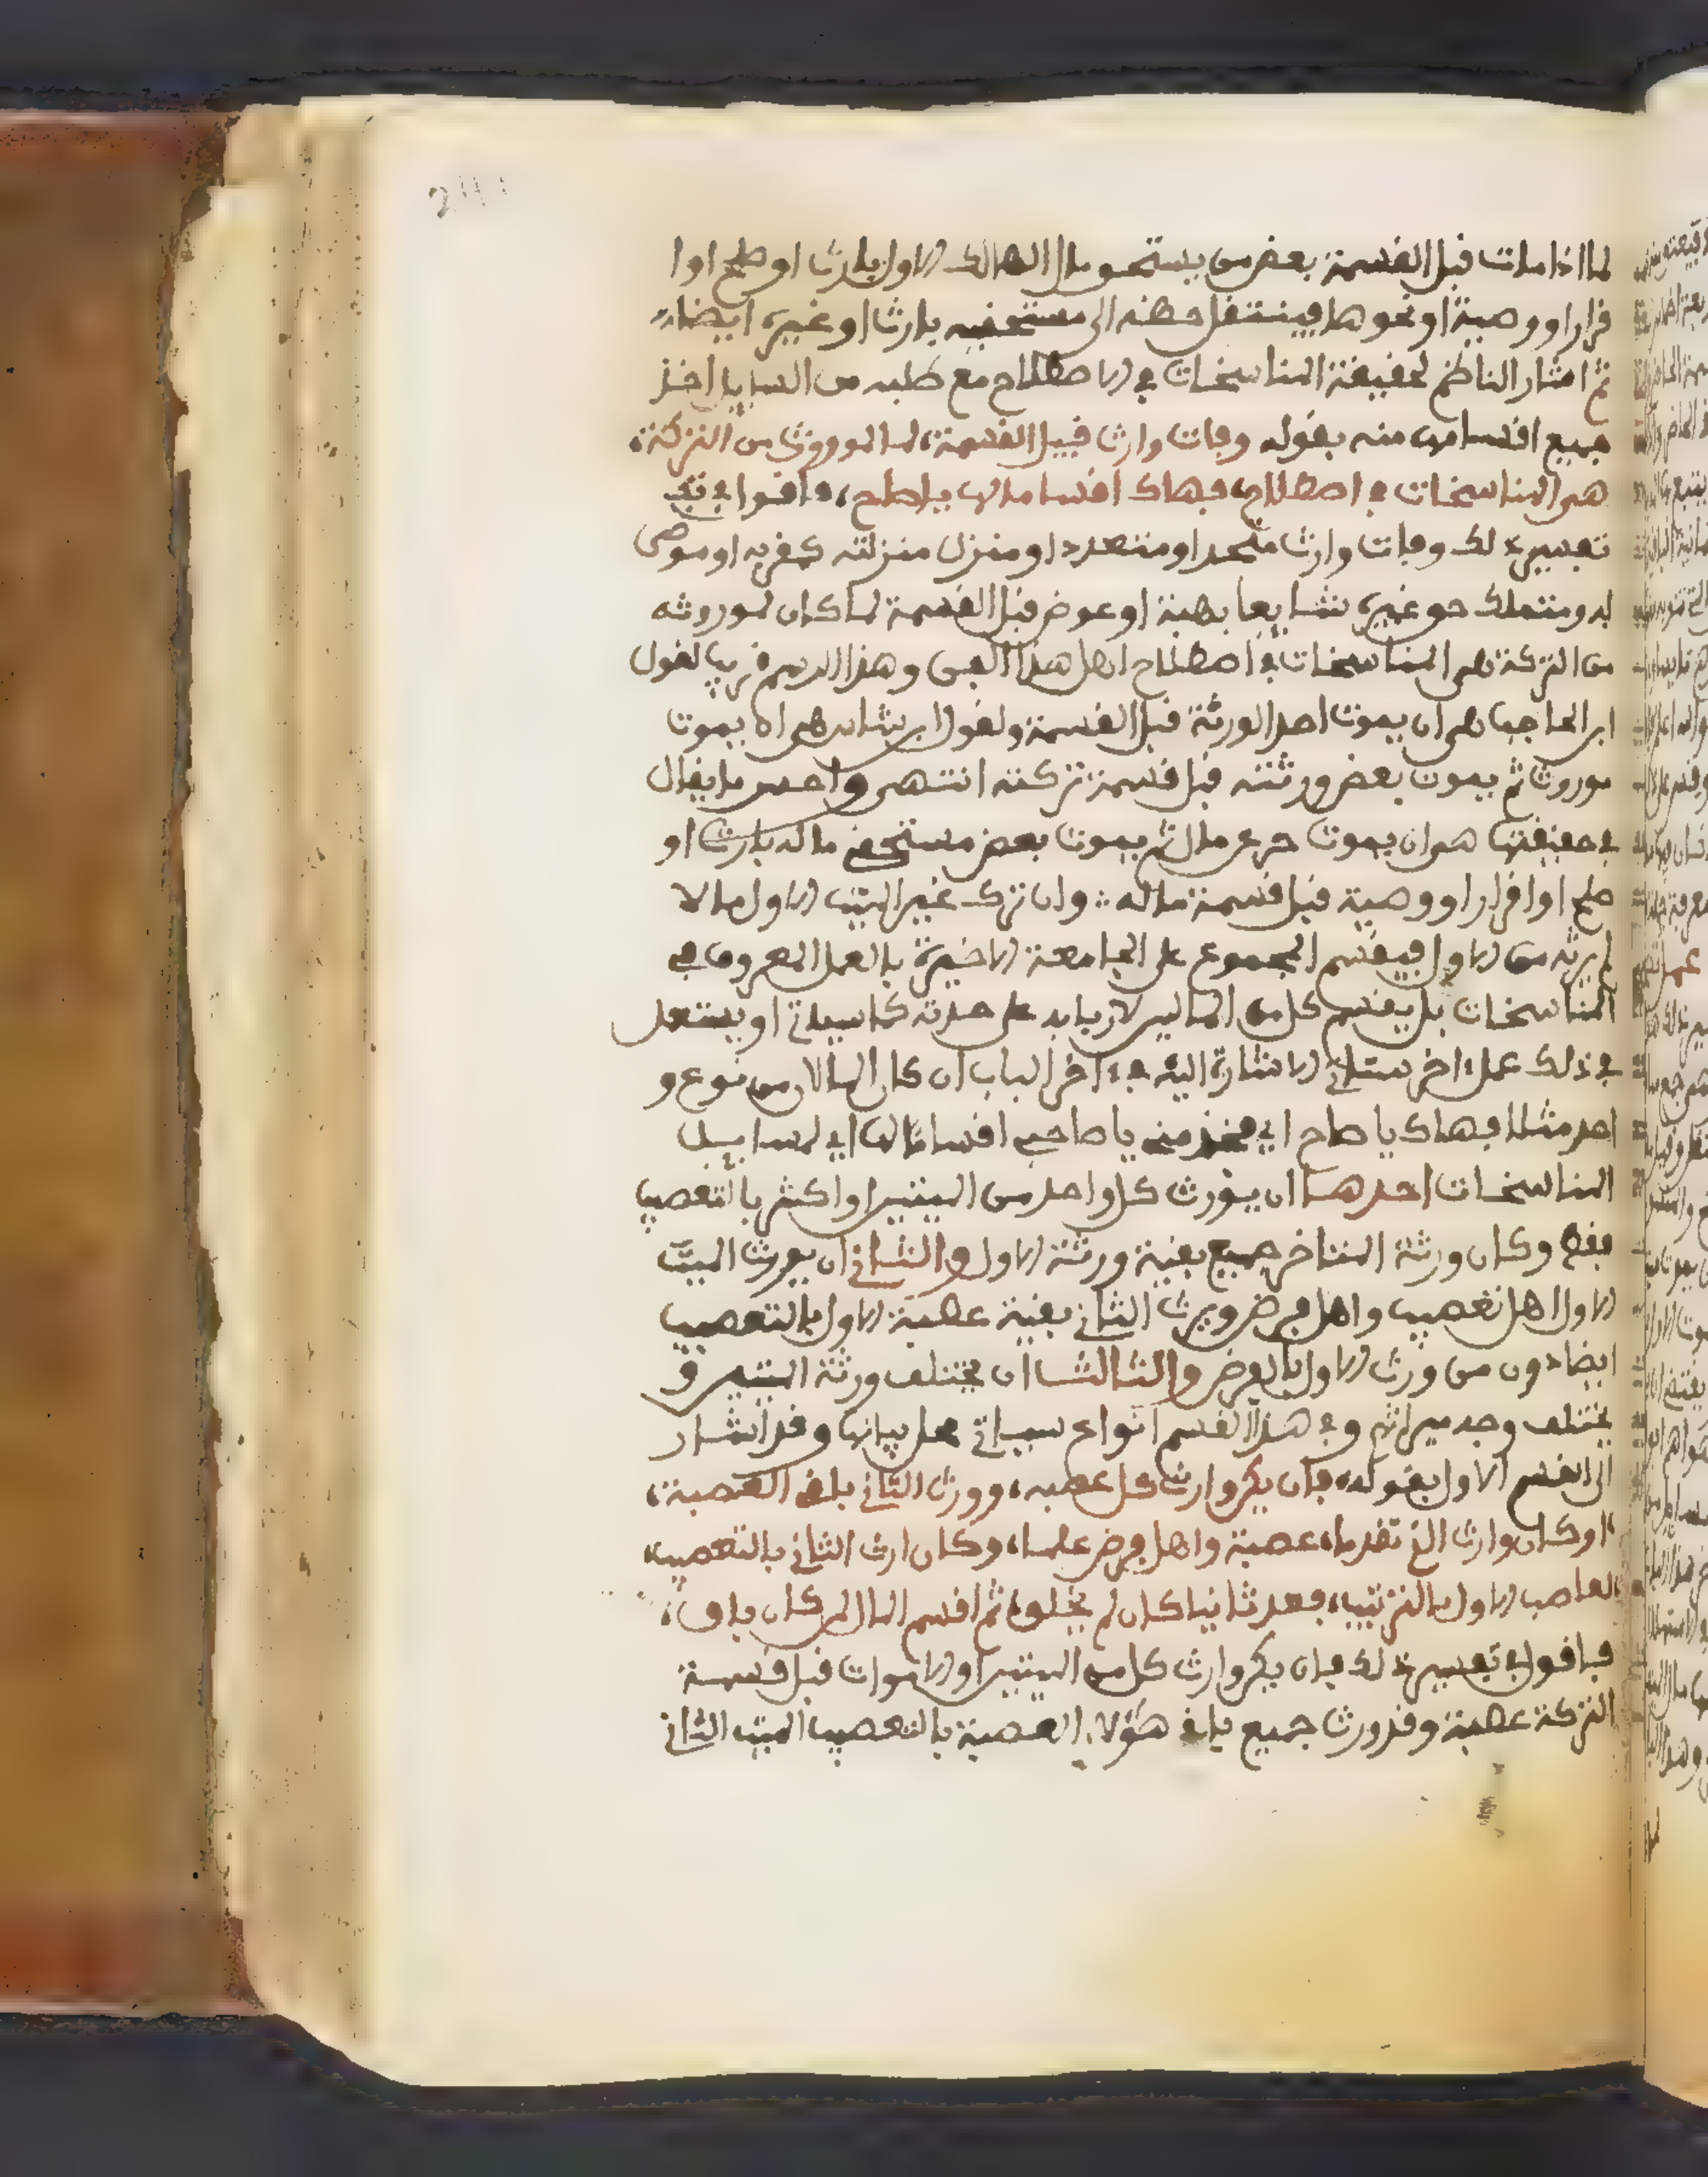 لما اذا مات قبل القسمة بعض من يستحق مال الهالك الاول بارث او صلح او ا
قرار او وصية او نحوها فينتقل حظه الى مستحقيه بارث او غيره ايضا
ثم اشار الناظم لحقيقة المناسخات في الاصطلاح مع طلبه من السايل اخذ
جميع اقسامها منه بقوله وفات وارث قبيل القسمة، لما لموروث من التركة،
هى المناسخات في اصطلاح، فهاك اقسامالها ياصاح، فاقول في تفـ
تفسير ذلك وفات وارث متحد او متعدد او منزل منزلته كمقر به او موصى
له ومتملك حق غيره شايعا بهبة او عوض قبل القسمة لما كان لموروثه
من التركة هى المناسخات في اصطلاح اهل هذا الفن وهذا الرسم قريب لقول
ابن الحاجب هى ان يموت احد الورثة قبل القسمة ولقول ابن شاس هى ان يموت
موروث ثم يموت بعض ورثته قبل قسمة تركته انتهى واحسن ما يقال
في حقيقتها هى ان يموت حر عن مال ثم يموت بعض مستحقي ماله بارث او
صلح او اقرار او وصية قبل قسمة ماله وان ترك غير الميت الاول مالا
لم يرثه من الاول فيقسم المجموع على الجامعة الاخيرة بالعمل المعروف في
المناسخات بل يقسم كل من المالين لاربابه على حدته كما سياتي او يستعمل
في ذلك عمل اخر ستاتي الاشارة اليه في اخر الباب ان كان المالان من نوع و
احد مثلا فهاك يا صاح اي فخذ مني يا صاحبي اقساما لها اي لمسايل
المناسخات احدها ان يورث كل واحد من الميتين او اكثر بالتعصيب
فقط وكان ورثة المتاخر جميع بقية ورثة الاول والثاني ان يرث الميت
الاول اهل تعصيب واهل فرض ويرث الثاني بقية عصبة الاول بالتعصيب
ايضا دون من ورث الاول بالفرض والثالث ان تختلف ورثة الميتين و
يختلف وجه ميراثهم وفي هذا القسم انواع سياتي محل بيانها وقد اشار
الى القسم الاول بقوله، فان يكن وارث كل عصبه، وورث الثاني باقي العصبة،
او كان وارث الذي تقدما، عصبة واهل فرض علما، وكان ارث الثاني بالتعصيب،
لعاصب الاول بالترتيب، فعد ثانيا كان لم يخلق، ثم اقسم المال لمن كان باق،
فاقول في تفسير ذلك فان يكن وارث كل من الميتين او الاموات قبل قسمة
التركة عصبة وقد ورث جميع باقي هؤلاء العصبة بالتعصيب الميت الثاني